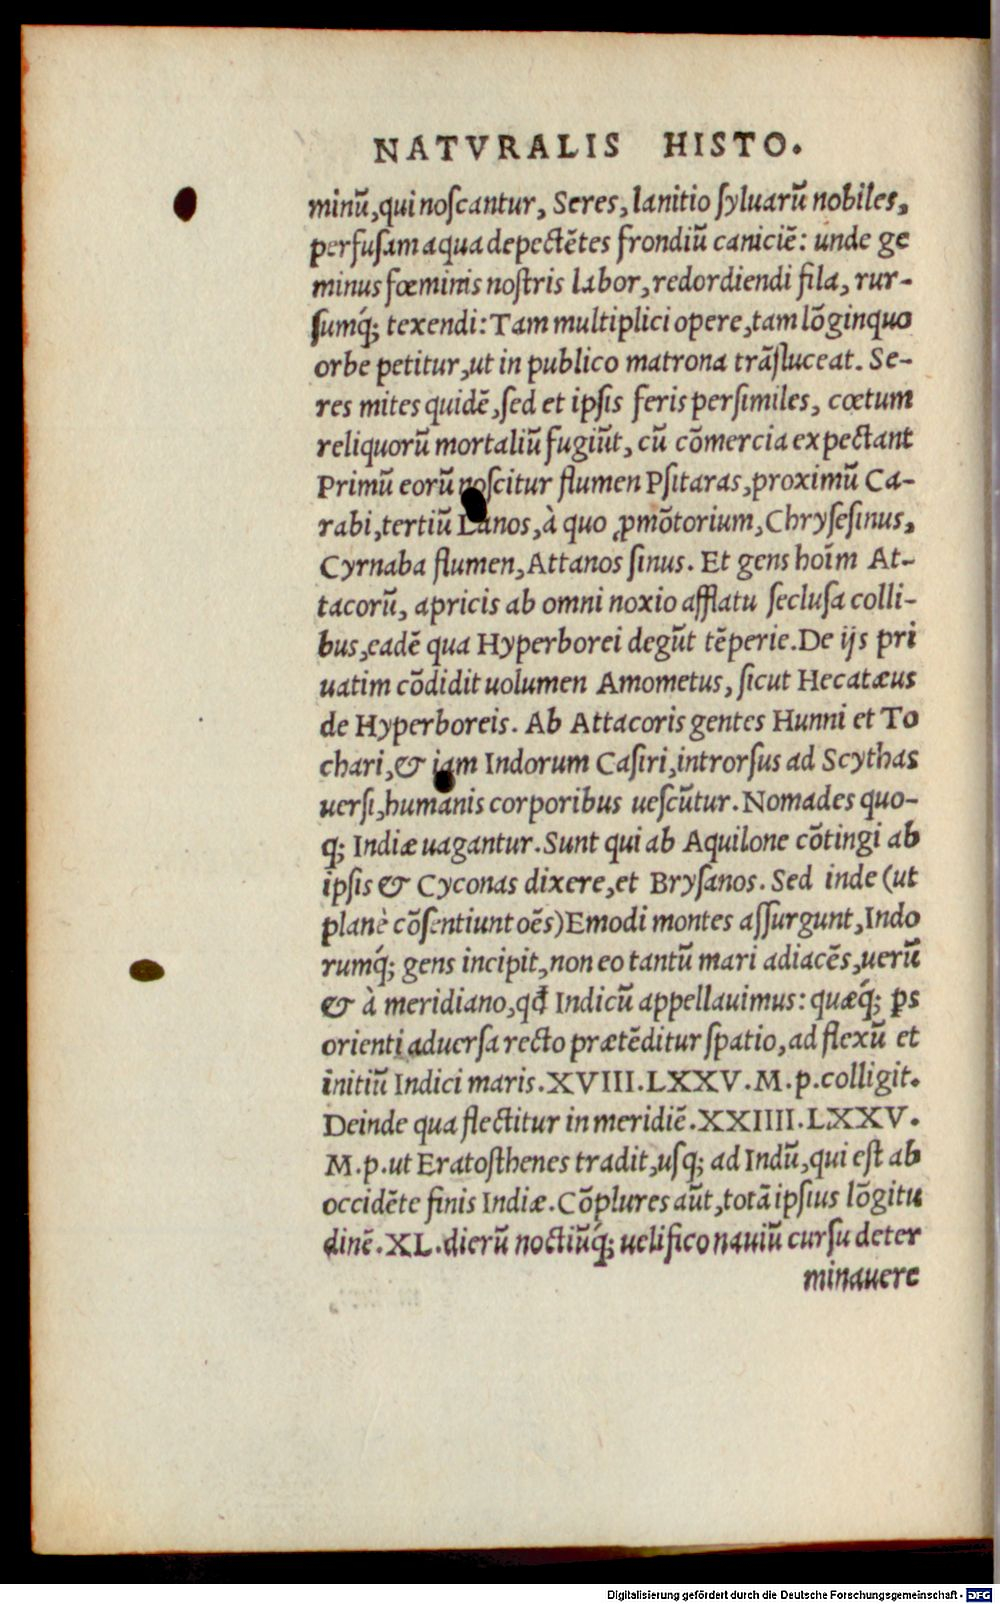 NATVRALIS HISTO.
minū, qui noſcantur, Seres, lanitio ſyluarū nobiles,
perfuſam aqua depectētes frondiū caniciē: unde ge
minus fœminis noſtris labor, redordiendi fila, rur-
ſumq́; texendi: Tam multiplici opere, tam lōginquo
orbe petitur, ut in publico matrona trāſluceat. Se-
res mites quidē, ſed et ipſis feris perſimiles, cœtum
reliquorū mortaliū fugiūt, cū cōmercia expectant
Primū eorū noſcitur flumen Pſitaras, proximū Ca-
rabi, tertiū Lanos, à quo ꝓmōtorium, Chryſeſinus,
Cyrnaba flumen, Attanos ſinus. Et gens hoīm At-
tacorū, apricis ab omni noxio afflatu ſecluſa colli-
bus, eadē qua Hyperborei degūt tēperie. De ijs pri
uatim cōdidit uolumen Amometus, ſicut Hecatæus
de Hyperboreis. Ab Attacoris gentes Hunni et To
chari, & iam Indorum Caſiri, introrſus ad Scythas
uerſi, humanis corporibus ueſcūtur. Nomades quo-
q; Indiæ uagantur. Sunt qui ab Aquilone cōtingi ab
ipſis & Cyconas dixere, et Bryſanos. Sed inde (ut
planè cōſentiunt oēs) Emodi montes aſſurgunt, Indo
rumq́; gens incipit, non eo tantū mari adiacēs, uerū
& à meridiano, qđ Indicū appellauimus: quæq́; ꝑs
orienti aduerſa recto prætēditur ſpatio, ad flexū et
initiū Indici maris. XVIII. LXXV. M. p. colligit.
Deinde qua flectitur in meridiē. XXIIII. LXXV.
M. p. ut Eratoſthenes tradit, uſq; ad Indū, qui eſt ab
occidēte finis Indiæ. Cōplures aūt, totā ipſius lōgitu
dinē. XL. dierū noctiūq́; uelifico nauiū curſu deter
minauere
Digitalisierung gefördert durch die Deutsche Forschungsgemeinschaft - DFG